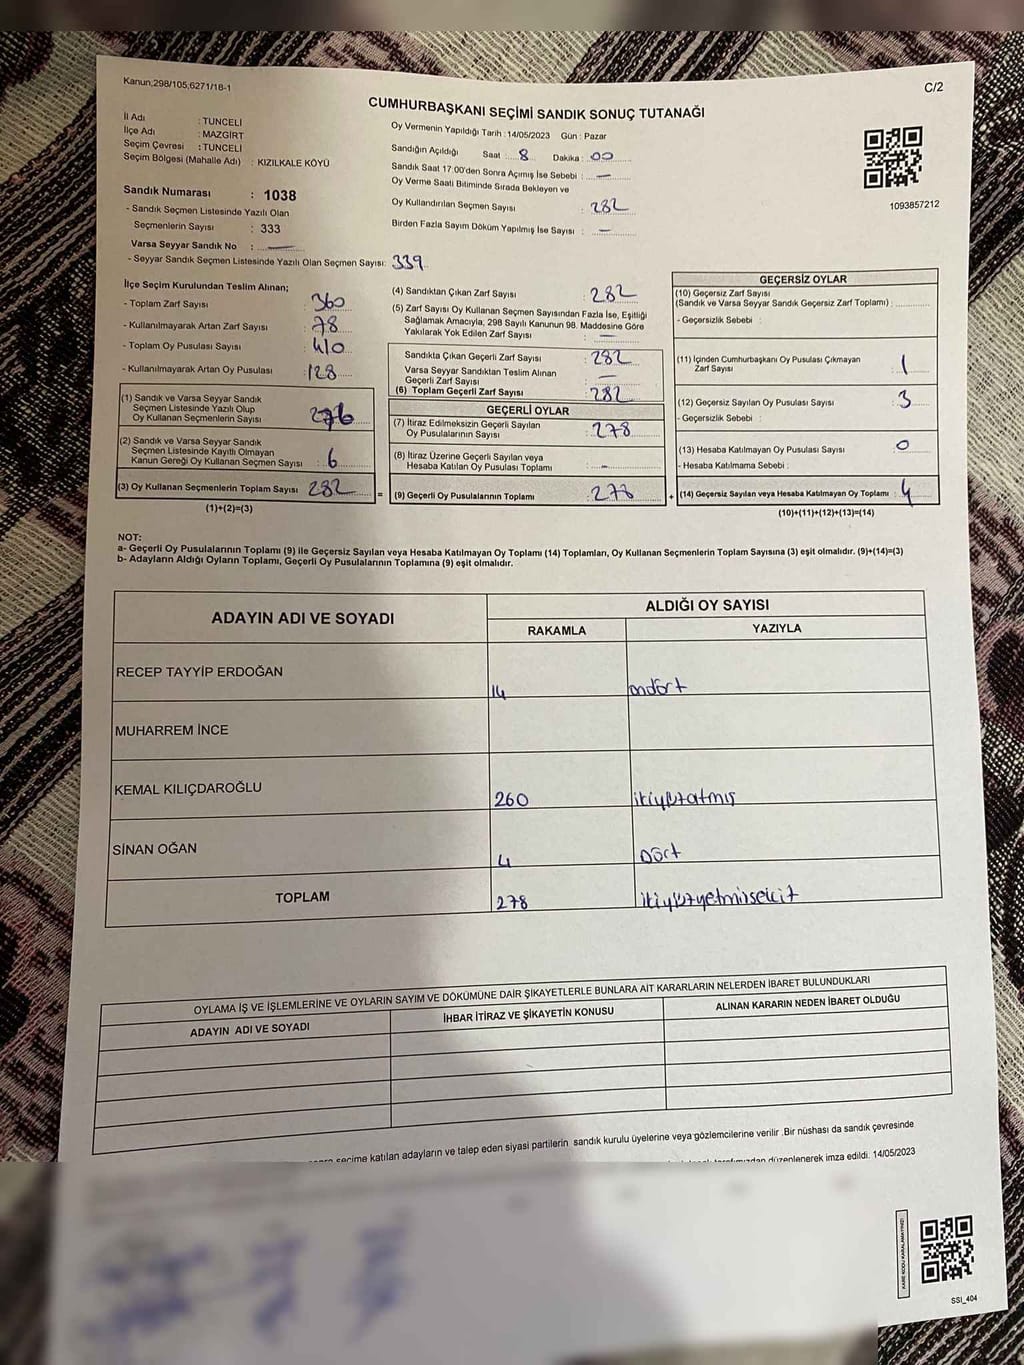 Kanun;298/105,6271/18-1
C/2
CUMHURBAŞKANI SEÇİMİ SANDIK SONUÇ TUTANAĞI
İl Adı : TUNCELİ
İlçe Adı : MAZGİRT
Seçim Çevresi : TUNCELİ
Seçim Bölgesi (Mahalle Adı) : KIZILKALE KÖYÜ
Sandık Numarası : 1038
- Sandık Seçmen Listesinde Yazılı Olan
Seçmenlerin Sayısı : 333
Varsa Seyyar Sandık No : —
- Seyyar Sandık Seçmen Listesinde Yazılı Olan Seçmen Sayısı: 339
Oy Vermenin Yapıldığı Tarih : 14/05/2023 Gün : Pazar
Sandığın Açıldığı Saat : 8 Dakika : 00
Sandık Saat 17:00'den Sonra Açımış İse Sebebi : —
Oy Verme Saati Bitiminde Sırada Bekleyen ve
Oy Kullandırılan Seçmen Sayısı : 282
Birden Fazla Sayım Döküm Yapılmış İse Sayısı : —
1093857212
İlçe Seçim Kurulundan Teslim Alınan;
- Toplam Zarf Sayısı : 360
- Kullanılmayarak Artan Zarf Sayısı : 78
- Toplam Oy Pusulası Sayısı : 410
- Kullanılmayarak Artan Oy Pusulası : 128
(1) Sandık ve Varsa Seyyar Sandık
Seçmen Listesinde Yazılı Olup
Oy Kullanan Seçmenlerin Sayısı : 276
(2) Sandık ve Varsa Seyyar Sandık
Seçmen Listesinde Kayıtlı Olmayan
Kanun Gereği Oy Kullanan Seçmen Sayısı : 6
(3) Oy Kullanan Seçmenlerin Toplam Sayısı : 282
(1)+(2)=(3)
(4) Sandıktan Çıkan Zarf Sayısı : 282
(5) Zarf Sayısı Oy Kullanan Seçmen Sayısından Fazla İse, Eşitliği
Sağlamak Amacıyla, 298 Sayılı Kanunun 98. Maddesine Göre
Yakılarak Yok Edilen Zarf Sayısı : —
Sandıkta Çıkan Geçerli Zarf Sayısı : 282
Varsa Seyyar Sandıktan Teslim Alınan
Geçerli Zarf Sayısı : —
(6) Toplam Geçerli Zarf Sayısı : 282
GEÇERLİ OYLAR
(7) İtiraz Edilmeksizin Geçerli Sayılan
Oy Pusulalarının Sayısı : 278
(8) İtiraz Üzerine Geçerli Sayılan veya
Hesaba Katılan Oy Pusulası Toplamı : -
= (9) Geçerli Oy Pusulalarının Toplamı : 278
GEÇERSİZ OYLAR
(10) Geçersiz Zarf Sayısı
(Sandık ve Varsa Seyyar Sandık Geçersiz Zarf Toplamı) :
- Geçersizlik Sebebi :
(11) İçinden Cumhurbaşkanı Oy Pusulası Çıkmayan
Zarf Sayısı : 1
(12) Geçersiz Sayılan Oy Pusulası Sayısı : 3
- Geçersizlik Sebebi :
(13) Hesaba Katılmayan Oy Pusulası Sayısı : 0
- Hesaba Katılmama Sebebi :
+ (14) Geçersiz Sayılan veya Hesaba Katılmayan Oy Toplamı : 4
(10)+(11)+(12)+(13)=(14)
NOT:
a- Geçerli Oy Pusulalarının Toplamı (9) ile Geçersiz Sayılan veya Hesaba Katılmayan Oy Toplamı (14) Toplamları, Oy Kullanan Seçmenlerin Toplam Sayısına (3) eşit olmalıdır. (9)+(14)=(3)
b- Adayların Aldığı Oyların Toplamı, Geçerli Oy Pusulalarının Toplamına (9) eşit olmalıdır.
ADAYIN ADI VE SOYADI ALDIĞI OY SAYISI
RAKAMLA YAZIYLA
RECEP TAYYİP ERDOĞAN 14 ondört
MUHARREM İNCE
KEMAL KILIÇDAROĞLU 260 ikiyüzatmış
SİNAN OĞAN 4 Dört
TOPLAM 278 ikiyüzyetmişsekiz
OYLAMA İŞ VE İŞLEMLERİNE VE OYLARIN SAYIM VE DÖKÜMÜNE DAİR ŞİKAYETLERLE BUNLARA AİT KARARLARIN NELERDEN İBARET BULUNDUKLARI
ADAYIN ADI VE SOYADI İHBAR İTİRAZ VE ŞİKAYETİN KONUSU ALINAN KARARIN NEDEN İBARET OLDUĞU
seçime katılan adayların ve talep eden siyasi partilerin sandık kurulu üyelerine veya gözlemcilerine verilir .Bir nüshası da sandık çevresinde
düzenlenerek imza edildi. 14/05/2023
KARE KODU KARALAMAYINIZ!
SSI_404